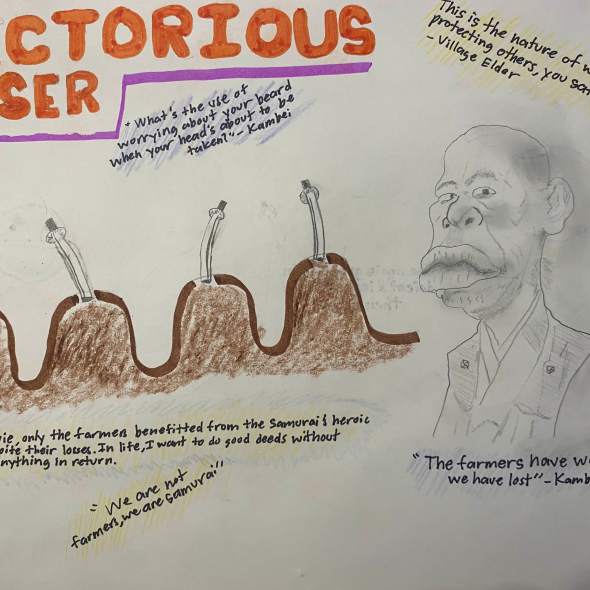 ICTORIOUS
SER
This is the nature of w
protecting others, you sa
- Village Elder
"What's the use of
worrying about your beard
when your head's about to be
taken?" - Kambei
ie, only the farmers benefitted from the Samurai's heroic
pite their losses. In life, I want to do good deeds without
nything in return.
"We are not
farmers, we are samurai"
"The farmers have w
we have lost" - Kamb